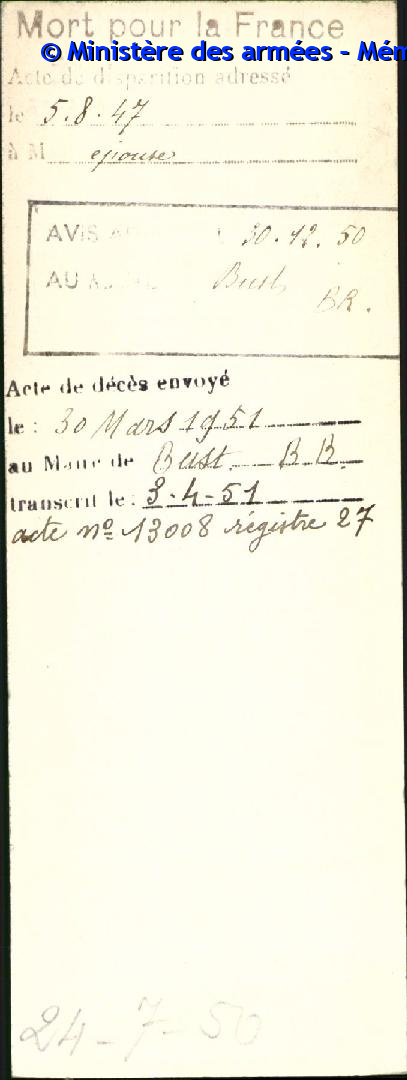 Mort pour la France
© Ministère des armées - Mém
Acte de disparition adressé
le 5.8.47
à M épouse
AVIS 30.12.50
AU Bust
BR.
Acte de décès envoyé
le : 30 Mars 1951
au Maire de Bust B.R.
transcrit le : 3-4-51
acte nº 13008 régistre 27
24-7-50